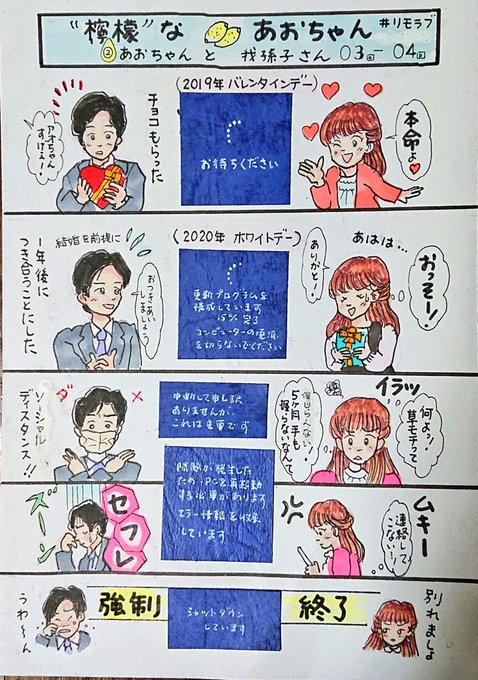 "檸檬"な あおちゃん #リモラブ
②あおちゃん と 我孫子さん 03話-04話
(2019年 バレンタインデー)
チョコもらった
アオちゃん
すげぇー!
お待ちください
本命よ♥
(2020年 ホワイトデー)
1年後に
つき合うことにした
結婚を前提に
おつきあい
しましょう
更新プログラムを
構成しています
15% 完了
コンピューターの電源
を切らないでください
あははは…
ありがと!
おっそー!
ソーシャル
ディスタンス!!
中断して申し訳
ありませんが、
これは重要です
イラッ
何よッ!
草モテって
5ヶ月 手も
握らないなんて
ズーン
セフレ
問題が発生した
ため、PCを再起動
する必要があります
エラー情報を収集
しています
ムキー
連絡して
こない!!
うわ〜ん
強制 終了
シャットダウン
しています
別れましょ